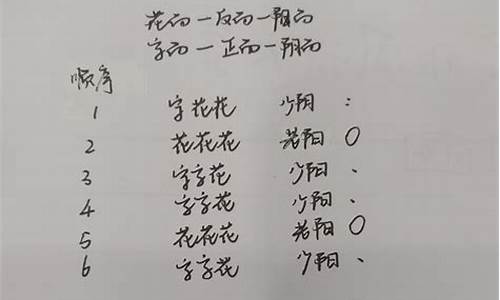 花面—反面—阳面
字面—正面—阴面
顺序
1 字花花 少阴 :
2 花花花 老阳 O
3 字字花 少阳 、
4 字字花 少阳 、
5 花花花 老阳 O
6 字字花 少阳 、